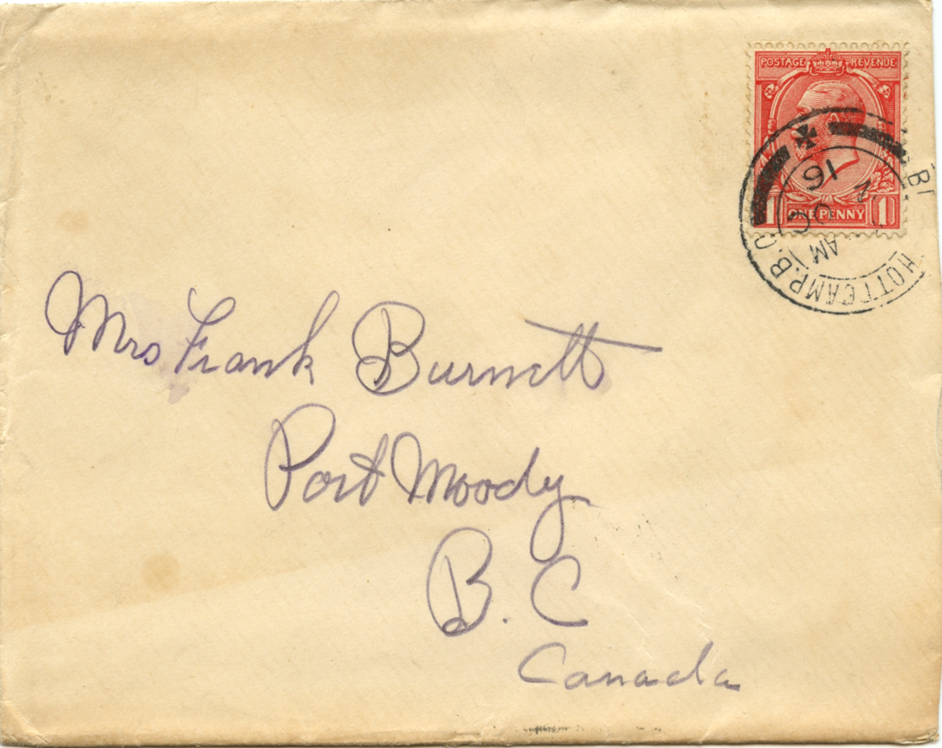 POSTAGE REVENUE
1 ONE PENNY 1
AM
16
B.O
Mrs Frank Burnett
Port Moody
B. C
Canada